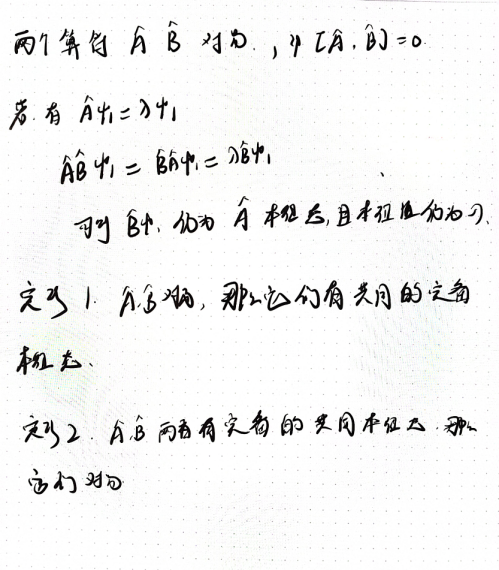 两个算符 Â B̂ 对易，即 [Â, B̂] = 0
若有 Âψ₁ = λψ₁
ÂB̂ψ₁ = B̂Âψ₁ = λB̂ψ₁
可到 B̂ψ₁ 仍为 Â 本征态，且本征值仍为 λ.
定理 1. Â, B̂ 对易，那么它们有共同的完备
本征态.
定理 2. Â, B̂ 两者有完备的共同本征态，那么
它们对易